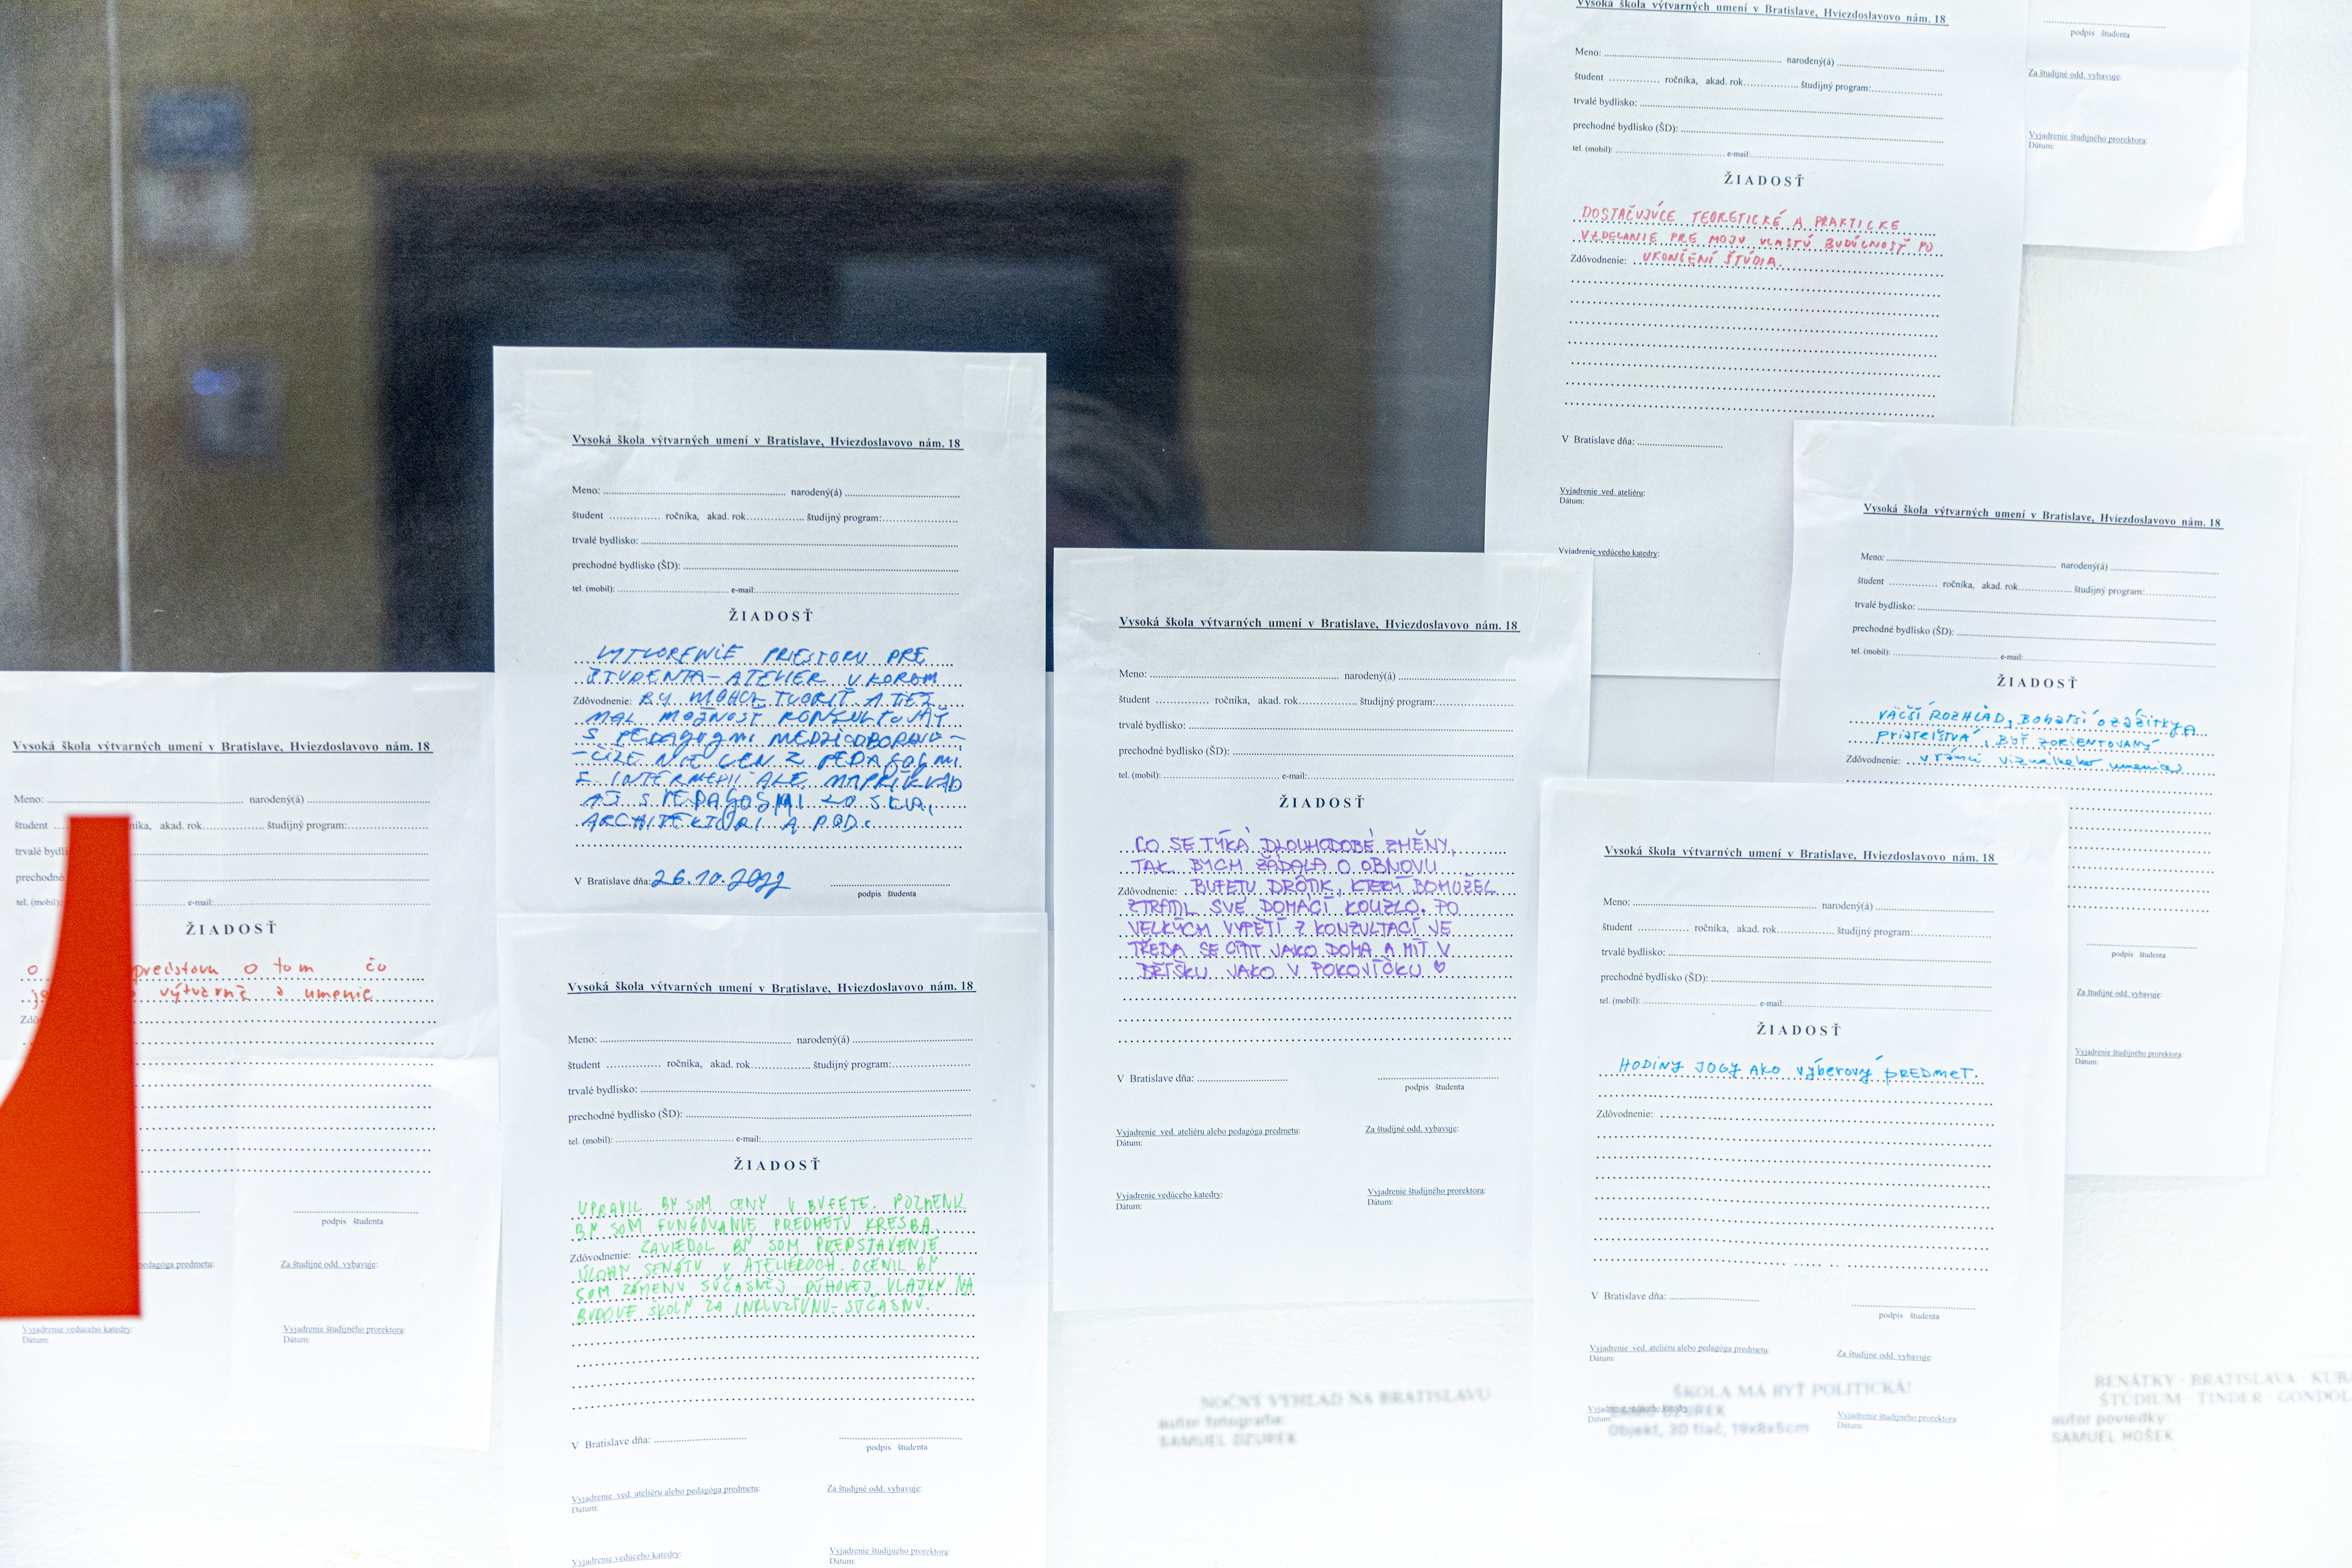 Vysoká škola výtvarných umení v Bratislave, Hviezdoslavovo nám. 18
Meno: narodený(á)
študent ročníka, akad. rok študijný program:
trvalé bydlisko:
prechodné bydlisko (ŠD):
tel. (mobil): e-mail:
ŽIADOSŤ
DOSTAČUJÚCE TEORETICKÉ A PRAKTICKE
VZDELANIE PRE MOJU VLASTÚ BUDÚCNOSŤ PO
Zdôvodnenie: UKONČENÍ ŠTÚDIA.
V Bratislave dňa:
Vyjadrenie ved. ateliéru:
Dátum:
Vyjadrenie vedúceho katedry:
podpis študenta
Za študijné odd. vybavuje:
Vyjadrenie študijného prorektora:
Dátum:
Vysoká škola výtvarných umení v Bratislave, Hviezdoslavovo nám. 18
Meno: narodený(á)
študent ročníka, akad. rok študijný program:
trvalé bydlisko:
prechodné bydlisko (ŠD):
tel. (mobil): e-mail:
ŽIADOSŤ
VYTVORENIE PRIESTORU PRE
ŠTUDENTA - ATELIER V KOROM
Zdôvodnenie: BY MOHOL TVORIŤ A TIEŽ
MAL MOŽNOSŤ KONZULTOVAŤ
S PEDAGOGMI MEDZIODBOROVO -
- ČIŽE NIE LEN Z PEDAGOGMI
Z INTERMÉDIÍ ALE NAPRÍKLAD
AJ S PEDAGOGMI ZO SKLA,
ARCHITEKTÚRI A POD.
V Bratislave dňa: 26.10.2022
podpis študenta
Vysoká škola výtvarných umení v Bratislave, Hviezdoslavovo nám. 18
Meno: narodený(á)
študent ročníka, akad. rok študijný program:
trvalé bydlisko:
prechodné bydlisko (ŠD):
tel. (mobil): e-mail:
ŽIADOSŤ
VÄČŠÍ ROZHĽAD, Bohatší o zážitky A
Priateľstvá, BYŤ ZORIENTOVANÝ
Zdôvodnenie: v rámci vizuálneho umenia
podpis študenta
Za študijné odd. vybavuje:
Vyjadrenie študijného prorektora:
Dátum:
Vysoká škola výtvarných umení v Bratislave, Hviezdoslavovo nám. 18
Meno: narodený(á)
študent ročníka, akad. rok študijný program:
trvalé bydlisko:
prechodné bydlisko (ŠD):
tel. (mobil): e-mail:
ŽIADOSŤ
CO SE TÝKÁ DLOUHODOBÉ ZMĚNY,
TAK BYCH ŽÁDALA O OBNOVU
Zdôvodnenie: BUFETU DRÔTIK, KTERÝ BOHUŽEL
ZTRATIL SVÉ DOMÁCÍ KOUZLO. PO
VELKÝCH VYPĚTÍ Z KONZULTACÍ JE
TŘEBA SE CÍTIT JAKO DOMA A MÍT V
BŘÍŠKU JAKO V POKOVÍČKU ♡
V Bratislave dňa:
podpis študenta
Vyjadrenie ved. ateliéru alebo pedagóga predmetu:
Dátum:
Za študijné odd. vybavuje:
Vyjadrenie vedúceho katedry:
Dátum:
Vyjadrenie študijného prorektora:
Dátum:
Vysoká škola výtvarných umení v Bratislave, Hviezdoslavovo nám. 18
Meno: narodený(á)
študent níka, akad. rok študijný program:
trvalé bydli
prechodné
tel. (mobil) e-mail:
ŽIADOSŤ
o predstavu o tom čo
výtvarné umenie
podpis študenta
pedagóga predmetu:
Za študijné odd. vybavuje:
Vyjadrenie vedúceho katedry:
Dátum:
Vyjadrenie študijného prorektora:
Dátum:
Vysoká škola výtvarných umení v Bratislave, Hviezdoslavovo nám. 18
Meno: narodený(á)
študent ročníka, akad. rok študijný program:
trvalé bydlisko:
prechodné bydlisko (ŠD):
tel. (mobil): e-mail:
ŽIADOSŤ
HODINY JOGY AKO výberový PREDMET.
Zdôvodnenie:
V Bratislave dňa:
podpis študenta
Vyjadrenie ved. ateliéru alebo pedagóga predmetu:
Dátum:
Za študijné odd. vybavuje:
Vyjadrenie vedúceho katedry:
Dátum:
Vyjadrenie študijného prorektora:
Dátum:
Vysoká škola výtvarných umení v Bratislave, Hviezdoslavovo nám. 18
Meno: narodený(á)
študent ročníka, akad. rok študijný program:
trvalé bydlisko:
prechodné bydlisko (ŠD):
tel. (mobil): e-mail:
ŽIADOSŤ
UPRAVIL BY SOM CENY V BUFETE. POZMENIL
BY SOM FUNGOVANIE PREDMETU KRESBA.
Zdôvodnenie: ZAVIEDOL BY SOM PREDSTAVENIE
ÚLOHN SENÁTU V ATELIÉROCH. OCENIL BY
SOM ZÁMENU SÚČASNEJ DÚHOVEJ VLAJKY NA
BUDOVE ŠKOLY ZA INKLUZÍVNU- SÚČASNÚ.
V Bratislave dňa:
podpis študenta
Vyjadrenie ved. ateliéru alebo pedagóga predmetu:
Dátum:
Za študijné odd. vybavuje:
Vyjadrenie vedúceho katedry:
Vyjadrenie študijného prorektora:
Dátum:
NOČNÝ VÝHĽAD NA BRATISLAVU
autor fotografie:
SAMUEL DZUREK
ŠKOLA MÁ BYŤ POLITICKÁ!
DZUREK
Objekt, 3D tlač, 19x8x5cm
BENÁTKY · BRATISLAVA · KUR
ŠTÚDIUM · TINDER · GONDOL
autor poviedky:
SAMUEL HOŠEK